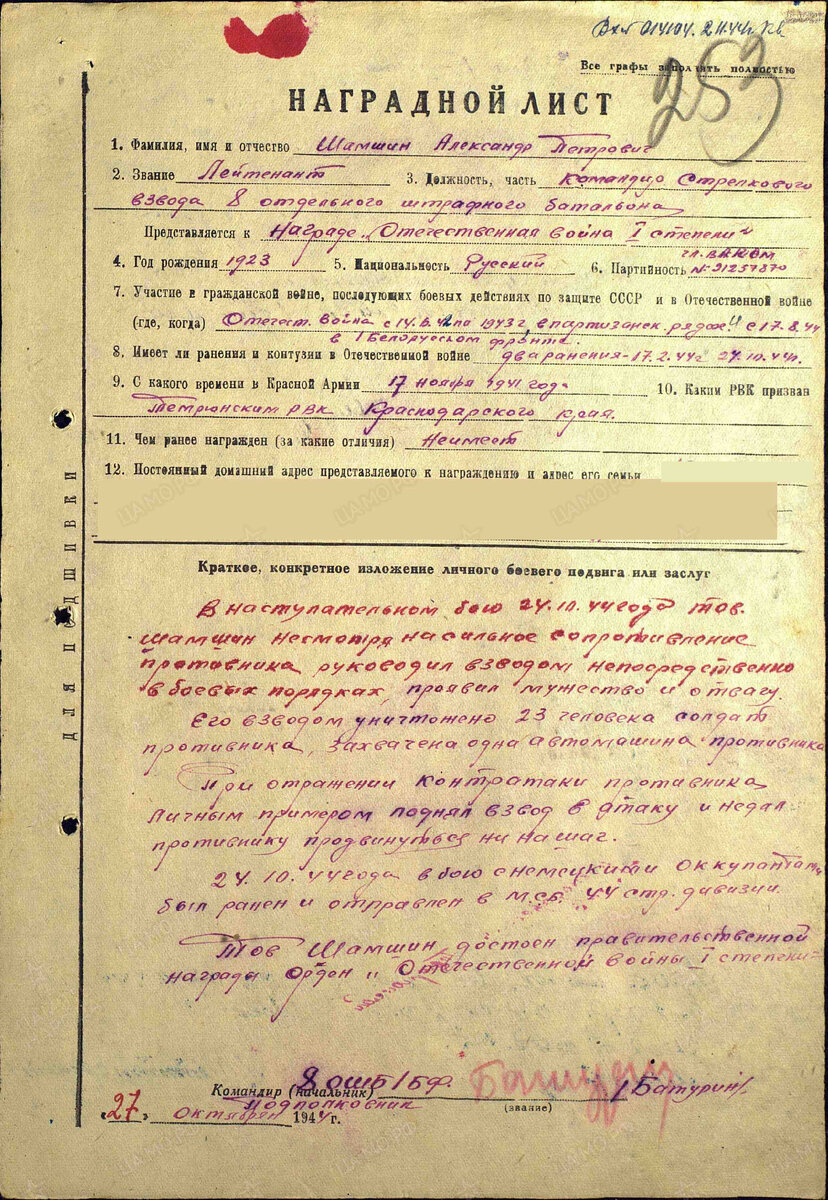 253
Все графы заполнять полностью
НАГРАДНОЙ ЛИСТ
1. Фамилия, имя и отчество Шамшин Александр Петрович
2. Звание Лейтенант 3. Должность, часть Командир Стрелкового
взвода 8 отдельного штрафного батальона
Представляется к Награде „Отечественная война I степени"
4. Год рождения 1923 5. Национальность Русский 6. Партийность чл. ВЛКСМ
№ 21257870
7. Участие в гражданской войне, последующих боевых действиях по защите СССР и в Отечественной войне
(где, когда) Отечест. война с 14.6.42 по 1943 г. в партизанск. рядах с 17.8.44
в 1 Белорусском фронте.
8. Имеет ли ранения и контузии в Отечественной войне два ранения - 17.2.44г 24.10.44г.
9. С какого времени в Красной Армии 17 ноября 1941 года 10. Каким РВК призван
Темрюнским РВК Краснодарского края.
11. Чем ранее награжден (за какие отличия) Неимеет
12. Постоянный домашний адрес представляемого к награждению и адрес его семьи
ДЛЯ ПОДШИВКИ
Краткое, конкретное изложение личного боевого подвига или заслуг
В наступательном бою 24.10.44 года тов.
Шамшин несмотря на сильное сопротивление
противника, руководил взводом непосредственно
в боевых порядках, проявил мужество и отвагу.
Его взводом уничтожено 23 человека солдат
противника, захвачена одна автомашина противника
При отражении контратаки противника
личным примером поднял взвод в атаку и недал
противнику продвинуться ни на шаг.
24.10.44 года в бою с немецкими оккупантами
был ранен и отправлен в М.С.Б. 44 стр. дивизии.
Тов Шамшин достоен правительственной
награды Орден „Отечественной войны I степени"
Командир (начальник) 8 ОШБ 1БФ.
Подполковник (звание) /Батурин/
„27" октября 1944 г.